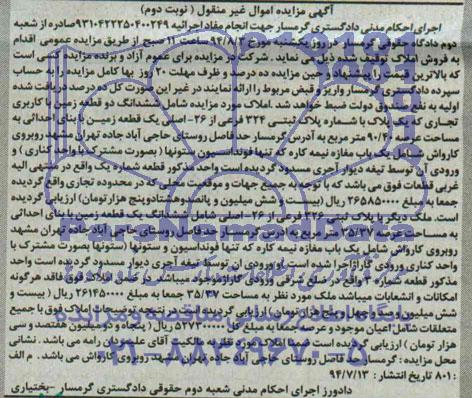 آگهی مزایده اموال غیر منقول (نوبت اول)
اجرای احکام مدنی دادگستری گرمسار جهت انجام مفاد اجرائیه ۹۳۱۰۴۲۲۲۵۰۴۰۰۲۴۹ صادره از شعبه
دوم دادگاه حقوقی گرمسار در روز یکشنبه مورخ ساعت ۱۱ صبح از طریق مزایده عمومی اقدام
به فروش املاک توقیف شده ذیل می نماید. شرکت در مزایده برای عموم آزاد و برنده مزایده کسی است
که بالاترین قیمت را پیشنهاد و حین مزایده ده درصد و ظرف مهلت ۲۰ روز بها کامل مزایده را به حساب
سپرده دادگستری گرمسار واریز و قبض مربوط را ارائه نمایند در غیر این صورت کل ده درصد دریافت شده
اولیه به نفع صندوق دولت ضبط خواهد شد. املاک مورد مزایده شامل ششدانگ دو قطعه زمین با کاربری
تجاری که یک پلاک با شماره پلاک ثبتی ۳۲۴ فرعی از ۲۶- اصلی یک قطعه زمین با بنای احداثی به
مساحت متر مربع به آدرس گرمسار حد فاصل روستای حاجی آباد جاده تهران مشهد روبروی
کارواش شامل یک باب مغازه نیمه کاره که تنها فونداسیون ستونها (بصورت مشترک با واحد کناری) و
ورودی آن توسط تیغه دیوار آجری مسدود گردیده است واحد مذکور قطعه شماره یک واقع در منتهی الیه
غربی قطعات فوق می باشد که با توجه به جمیع جهات و موقعیت محلی که در محدوده تجاری واقع گردیده
جمعا به مبلغ ۲۶۵۸۵۰۰۰ ریال (بیست و شش میلیون و پانصد و هشتاد و پنج هزار تومان) ارزیابی گردیده
است. ملک دیگر با پلاک ثبتی ۳۲۶ فرعی از ۲۶- اصلی شامل ششدانگ یک قطعه زمین با بنای احداثی
به مساحت عرصه ۳۵/۳۷ متر مربع به آدرس گرمسار حد فاصل روستای حاجی آباد جاده تهران مشهد
روبروی کارواش شامل یک باب مغازه نیمه کاره که تنها فونداسیون و ستونها (ستونها بصورت مشترک با
واحد کناری ورودی گاراژ اجرا شده است) و ورودی آن توسط تیغه آجری دیوار مسدود گردیده است واحد
مذکور قطعه شماره ۲ واقع در ضلع شرقی ورودی گاراژ موجود میباشد. در ضمن املاک فوق فاقد هرگونه
امکانات و انشعابات میباشد ملک مورد نظر به مساحت ۳۵/۳۷ جمعا به مبلغ ۲۶۱۴۵۰۰۰۰ ریال (بیست و
شش میلیون و صد و چهل و پنج هزار تومان) ارزیابی گردیده است در نتیجه توضیحات املاک فوق با جمیع
متعلقات شامل اعیان موجود و عرصه جمعا به مبلغ کل ۵۲۷۳۰۰۰۰۰ ریال (پنجاه و دو میلیون هفتصد و سی
هزار تومان) ارزیابی گردیده است ضمنا املاک مورد نظر به مالکیت آقای علی خان زمان رامه می باشد. نشانی
محل مزایده: گرمسار حد فاصل روستای حاجی آباد جاده تهران مشهد روبروی کارواش می باشد. م الف
۸۰۱: تاریخ انتشار: ۹۴/۷/۱۳
دادورز اجرای احکام مدنی شعبه دوم حقوقی دادگستری گرمسار - بختیاری
۰۲۱-۸۸۳۴۹۶۷۰-۵